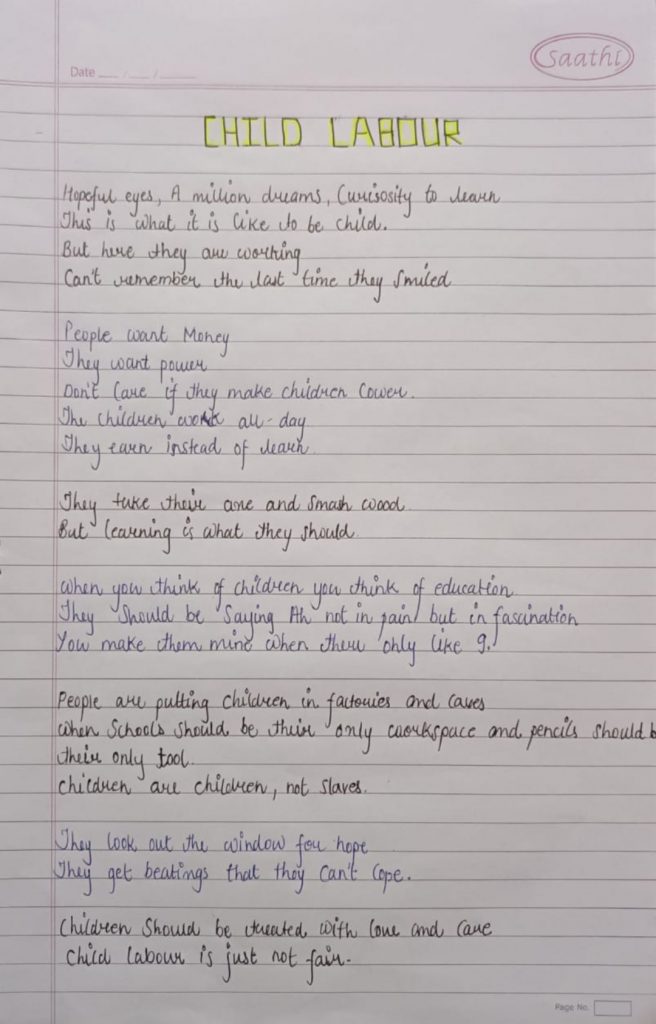 Saathi
Date __/__/____
CHILD LABOUR
Hopeful eyes, A million dreams, Curisosity to learn
This is what it is like to be child.
But here they are working
Can't remember the last time they smiled
People want Money
They want power
Don't Care if they make children Cower.
The children work all-day
They earn instead of learn.
They take their axe and smash wood.
But learning is what they should.
when you think of children you think of education.
They should be 'Saying Ah' not in pain but in fascination
You make them mine when there only like 9.
People are putting children in factories and caves
when Schools should be their only workspace and pencils should b
their only tool.
children are children, not slaves.
They look out the window for hope
They get beatings that they Can't Cope.
Children Should be treated with love and care
Child Labour is just not fair.
Page No.